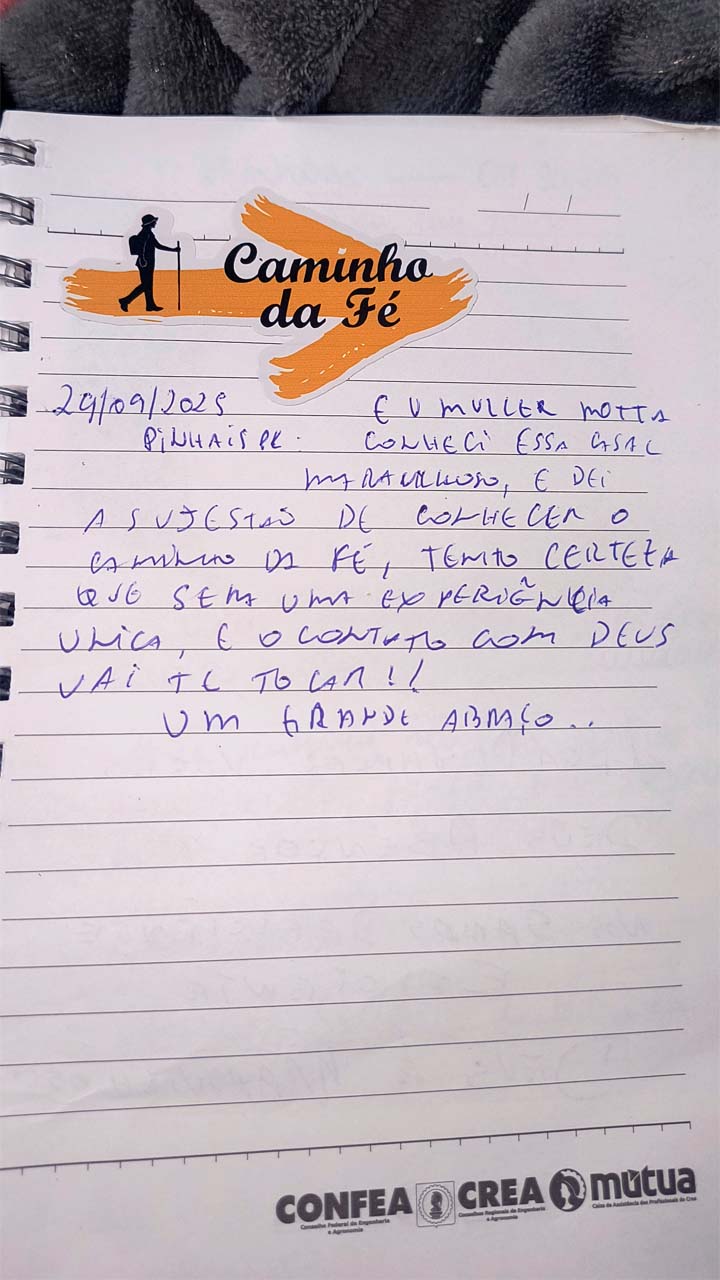 Caminho
da Fé
29/09/2025 EU MULLER MOTTA
PINHAIS PR. CONHECI ESSA CASAL
MARAVILHOSO, E DEI
A SUJESTÃO DE CONHECER O
CAMINHO DA FÉ, TENHO CERTEZA
QUE SERA UMA EXPERIÊNCIA
UNICA, E O CONTATO COM DEUS
VAI TE TOCAR!!
UM GRANDE ABRAÇO..
CONFEA CREA mútua
Conselho Federal de Engenharia
e Agronomia
Conselhos Regionais de Engenharia
e Agronomia
Caixa de Assistência dos Profissionais do Crea